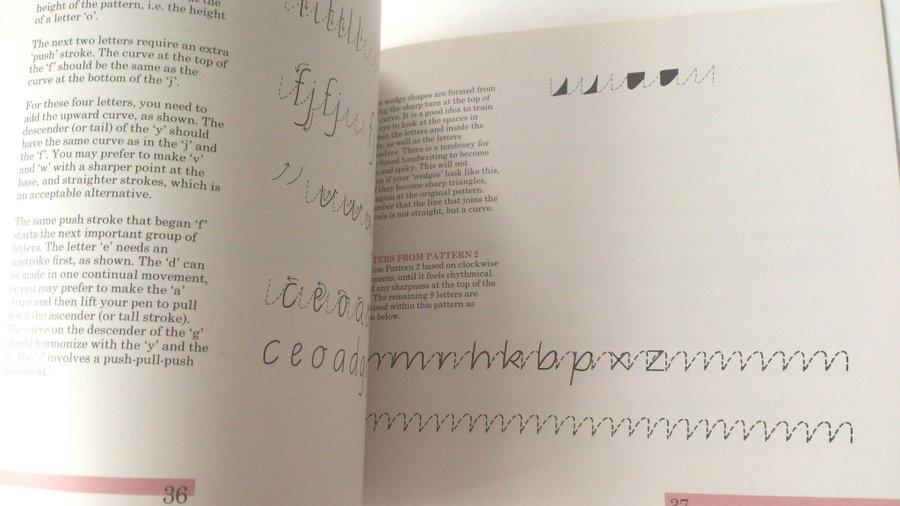 height of the pattern, i.e. the height
of a letter ‘o’.
The next two letters require an extra
‘push’ stroke. The curve at the top of
the ‘f’ should be the same as the
curve at the bottom of the ‘j’.
For these four letters, you need to
add the upward curve, as shown. The
descender (or tail) of the ‘y’ should
have the same curve as in the ‘j’ and
the ‘f’. You may prefer to make ‘v’
and ‘w’ with a sharper point at the
base, and straighter strokes, which is
an acceptable alternative.
The same push stroke that began ‘f’
starts the next important group of
letters. The letter ‘e’ needs an
upstroke first, as shown. The ‘d’ can
be made in one continual movement,
or you may prefer to make the ‘a’
shape and then lift your pen to pull
down the ascender (or tall stroke).
The curve on the descender of the ‘g’
should harmonize with the ‘y’ and the
involves a push-pull-push
movement.
fjfj
c e o a
c e o a d g
36
wedge shapes are formed from
the sharp turn at the top of
curve. It is a good idea to train
eye to look at the spaces in
the letters and inside the
as well as the letters
There is a tendency for
based handwriting to become
and spiky. This will not
if your ‘wedges’ look like this,
again at the original pattern.
that the line that joins the
is not straight, but a curve.
FROM PATTERN 2
Pattern 2 based on clockwise
until it feels rhythmical.
any sharpness at the top of the
The remaining 9 letters are
within this pattern as
below.
r m n h k b p x z
37